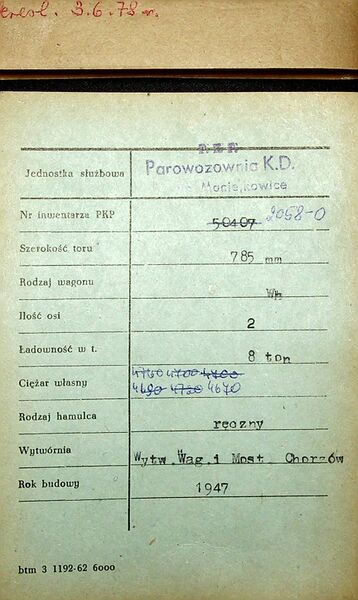 kresl. 3.6.78 r.
P.K.P.
Jednostka służbowa Parowozownia K.D.
Maciejkowice
Nr inwentarza PKP 50407 2058-0
Szerokość toru 785 mm
Rodzaj wagonu Wh
Ilość osi 2
Ładowność w t. 8 ton
Ciężar własny 4760 4700 4700
4690 4720 4670
Rodzaj hamulca ręczny
Wytwórnia Wytw. Wag. i Most. Chorzów
Rok budowy 1947
btm 3 1192-62 6000